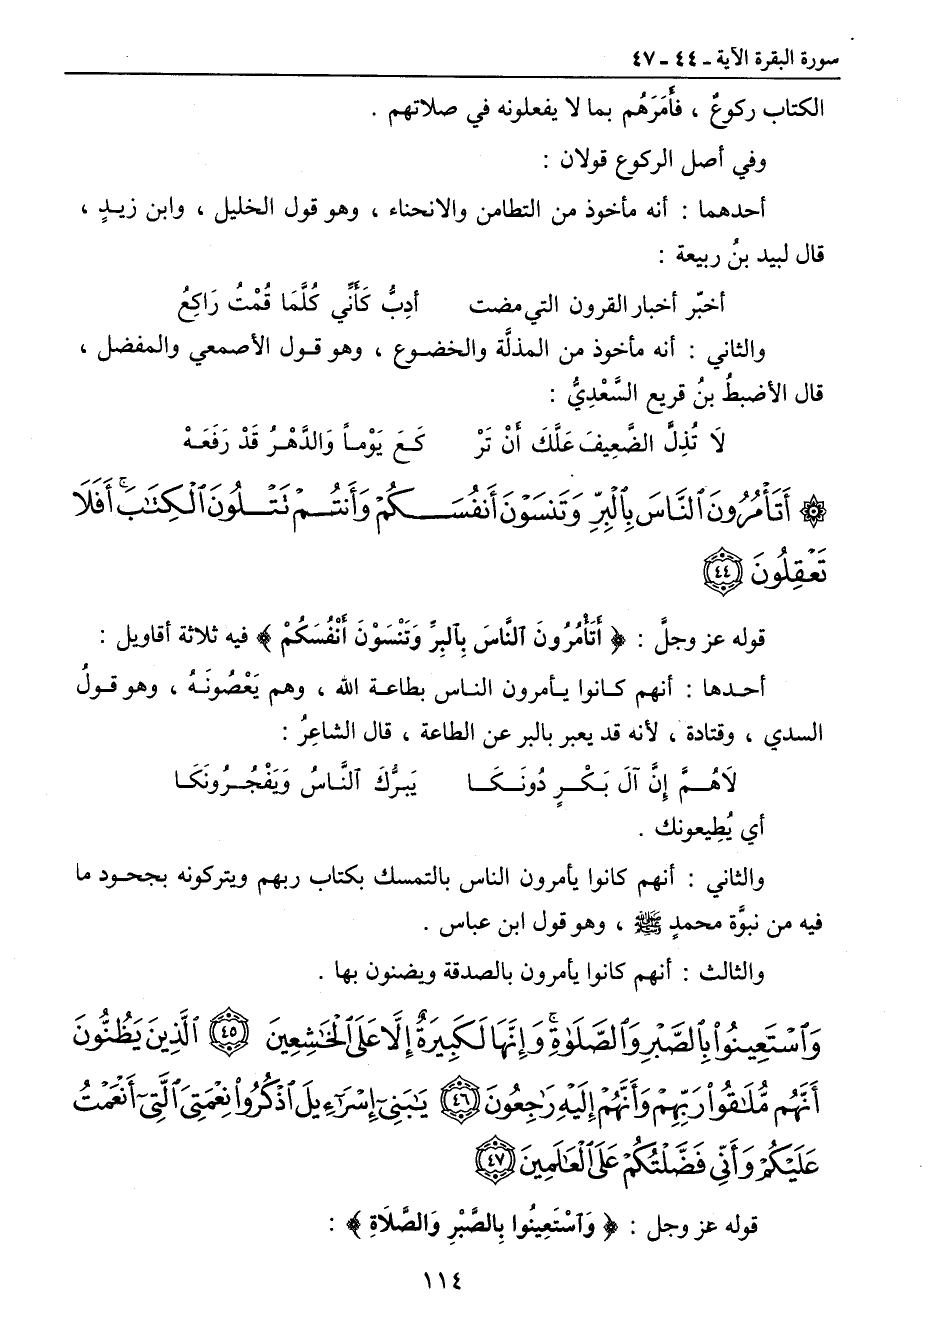 سورة البقرة الآية ـ ٤٤ ـ ٤٧
الكتاب ركوعٌ ، فأَمَرَهُم بما لا يفعلونه في صلاتهم .
وفي أصل الركوع قولان :
أحدهما : أنه مأخوذ من التطامن والانحناء ، وهو قول الخليل ، وابن زيدٍ ،
قال لبيد بنُ ربيعة :
أخبّر أخبار القرون التي مضت أدِبُّ كَأَنِّي كُلَّمَا قُمْتُ رَاكِعُ
والثاني : أنه مأخوذ من المذلَّة والخضوع ، وهو قول الأصمعي والمفضل ،
قال الأضبطُ بنُ قريع السَّعْدِيُّ :
لَا تُذِلَّ الضَّعِيفَ عَلَّكَ أَنْ تَرْ كَعَ يَوْماً وَالدَّهْرُ قَدْ رَفَعَهْ
۞ أَتَأْمُرُونَ ٱلنَّاسَ بِٱلْبِرِّ وَتَنسَوْنَ أَنفُسَكُمْ وَأَنتُمْ تَتْلُونَ ٱلْكِتَٰبَ ۚ أَفَلَا
تَعْقِلُونَ ٤٤
قوله عز وجلَّ : ﴿ أَتَأْمُرُونَ ٱلنَّاسَ بِٱلبِرِّ وَتَنْسَوْنَ أَنْفُسَكُمْ ﴾ فيه ثلاثة أقاويل :
أحدها : أنهم كانوا يأمرون الناس بطاعة الله ، وهم يَعْصُونَهُ ، وهو قولُ
السدي ، وقتادة ، لأنه قد يعبر بالبر عن الطاعة ، قال الشاعِرُ :
لَاهُمَّ إِنَّ آلَ بَكْرٍ دُونَكَا يَبرُّكَ ٱلنَّاسُ وَيَفْجُرُونَكَا
أي يُطِيعونك .
والثاني : أنهم كانوا يأمرون الناس بالتمسك بكتاب ربهم ويتركونه بجحود ما
فيه من نبوَّة محمدٍ ﷺ ، وهو قول ابن عباس .
والثالث : أنهم كانوا يأمرون بالصدقة ويضنون بها .
وَٱسْتَعِينُوا۟ بِٱلصَّبْرِ وَٱلصَّلَوٰةِ ۚ وَإِنَّهَا لَكَبِيرَةٌ إِلَّا عَلَى ٱلْخَٰشِعِينَ ٤٥ ٱلَّذِينَ يَظُنُّونَ
أَنَّهُم مُّلَٰقُوا۟ رَبِّهِمْ وَأَنَّهُمْ إِلَيْهِ رَٰجِعُونَ ٤٦ يَٰبَنِىٓ إِسْرَٰٓءِيلَ ٱذْكُرُوا۟ نِعْمَتِىَ ٱلَّتِىٓ أَنْعَمْتُ
عَلَيْكُمْ وَأَنِّى فَضَّلْتُكُمْ عَلَى ٱلْعَٰلَمِينَ ٤٧
قوله عز وجل : ﴿ وَٱسْتَعِينُوا بِالصَّبْرِ وَالصَّلَاةِ ﴾ :
١١٤